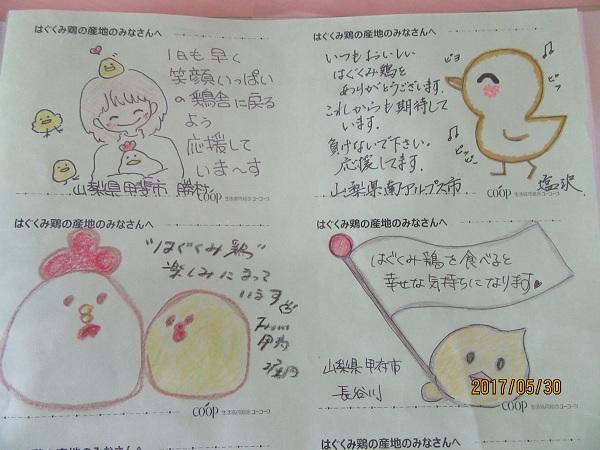 はぐくみ鶏の産地のみなさんへ
1日も早く
笑顔いっぱい
の鶏舎に戻る
よう
応援して
いま〜す
山梨県甲斐市 勝村
CO・OP 生活協同組合ユーコープ
はぐくみ鶏の産地のみなさんへ
いつもおいしい
はぐくみ鶏を
ありがとうございます。
これからも期待して
います。
負けないで下さい。
応援してます。
ピヨ
ピッ
ピッ
山梨県南アルプス市 塩沢
CO・OP 生活協同組合ユーコープ
はぐくみ鶏の産地のみなさんへ
"はぐくみ鶏"
楽しみにまって
います
From
CO・OP 生活協同組合ユーコープ
はぐくみ鶏の産地のみなさんへ
はぐくみ鶏を食べると
幸せな気持ちになります
山梨県甲府市
長谷川
CO・OP 生活協同組合ユーコープ
2017/05/30
はぐくみ鶏の産地のみなさんへ
はぐくみ鶏の産地のみなさんへ